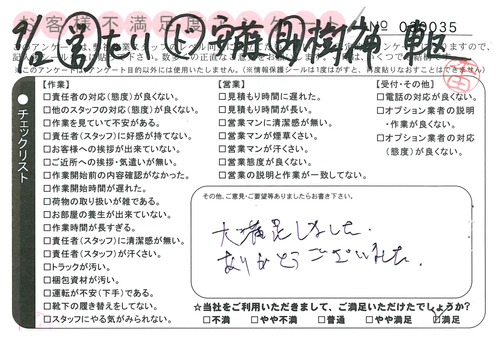 お客様不満足度アンケート
№ 0 0035
※このアンケートはアンケート目的以外には使用いたしません。(※情報保護シールは1度はがすと、再度貼りなおすことはできません)
チェックリスト
【作業】
□責任者の対応(態度)が良くない。
□他のスタッフの対応(態度)が良くない。
□作業を見ていて不安がある。
□責任者(スタッフ)に好感が持てない。
□お客様への挨拶が出来ていない。
□ご近所への挨拶・気遣いが無い。
□作業開始前の内容確認がなかった。
□作業開始時間が遅れた。
□荷物の取り扱いが雑である。
□お部屋の養生が出来ていない。
□作業時間が長すぎる。
□責任者(スタッフ)に清潔感が無い。
□責任者(スタッフ)が汗くさい。
□トラックが汚い。
□梱包資材が汚い。
□運転が不安(下手)である。
□靴下の履き替えをしてない。
□スタッフにやる気がみられない。
【営業】
□見積もり時間に遅れた。
□見積もり時間が長い。
□営業マンに清潔感が無い。
□営業マンが煙草くさい。
□営業マンが汗くさい。
□営業態度が良くない。
□営業の説明と作業が一致してない。
【受付・その他】
□電話の対応が良くない。
□オプション業者の説明・作業が良くない。
□オプション業者の対応(態度)が良くない。
その他、ご意見・ご要望等ありましたらお書き下さい。
大満足しました。
ありがとうございました。
☆当社をご利用いただきまして、ご満足いただけたでしょうか?
□不満 □やや不満 □普通 □やや満足 □満足